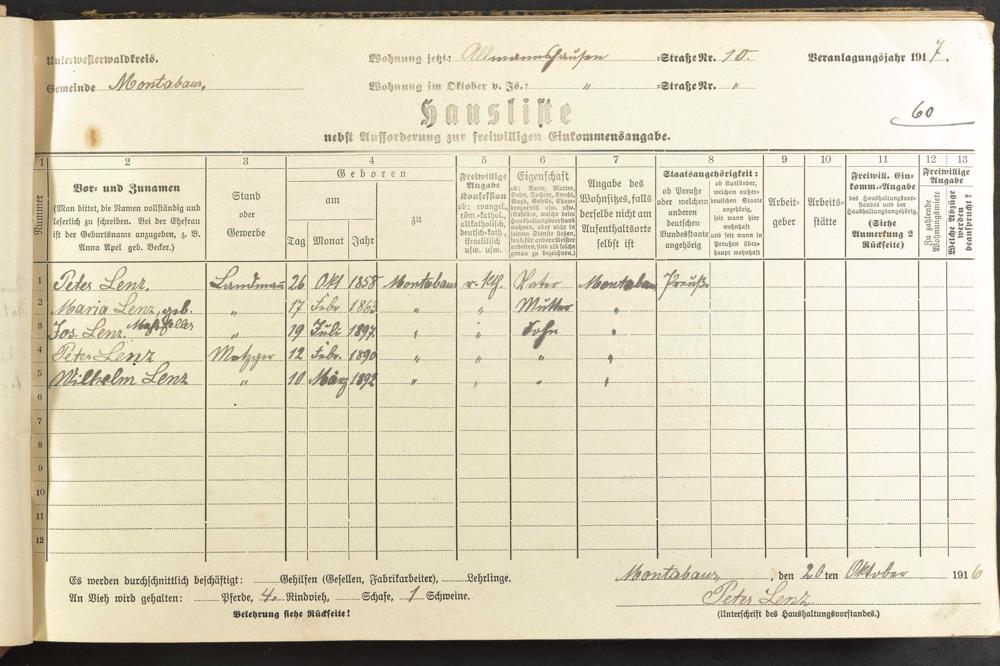 Unterwesterwaldkreis.
Wohnung jetzt: Allmannshausen =Straße Nr. 10.
Veranlagungsjahr 1917.
Gemeinde Montabaur,
Wohnung im Oktober v. Js.: " =Straße Nr. "
60
Hausliste
nebst Aufforderung zur freiwilligen Einkommensangabe.
1 2 3 4 5 6 7 8 9 10 11 12 13
Nummer
Vor- und Zunamen
(Man bittet, die Namen vollständig und
leserlich zu schreiben. Bei der Ehefrau
ist der Geburtsname anzugeben, z. B.
Anna Apel geb. Becker.)
Stand
oder
Gewerbe
Geboren
am
zu
Tag Monat Jahr
Freiwillige
Angabe
Konfession
ob: evangel.,
röm.-kathol.,
altkatholisch,
deutsch-kath.,
israelitisch
usw. usw.
Eigenschaft
ob: Vater, Mutter,
Sohn, Tochter, Knecht,
Magd, Geselle, Cham-
bregarnist usw. usw.
(Gesellen, welche beim
Haushaltungsvorstand
wohnen, aber nicht in
dessen Dienste stehen,
sond. für andere Meister
arbeiten, sind als solche
genau zu bezeichnen.)
Angabe des
Wohnsitzes, falls
derselbe nicht am
Aufenthaltsorte
selbst ist
Staatsangehörigkeit:
ob Preuße
oder welchem
anderen
deutschen
Bundesstaate
angehörig
ob Ausländer,
welchem außer-
deutschen Staate
angehörig,
seit wann hier
wohnhaft
und seit wann in
Preußen über-
haupt wohnhaft
Arbeit-
geber
Arbeits-
stätte
Freiwill. Ein-
komm.-Angabe
des Haushaltungsvor-
standes und der
Haushaltungsangehörig.
(Siehe
Anmerkung 2
Rückseite)
Freiwillige
Angabe
Zu zahlende
Wohnungsmiete
Welche Abzüge
werden
beansprucht?
1 Peter Lenz Landmann 26 Okt 1858 Montabaur r. kth. Vater Montabaur Preuße
2 Maria Lenz, geb. " 17 Febr 1863 " " Mutter "
3 Jos. Lenz. " 19 Juli 1897 " " Sohn "
4 Peter Lenz Metzger 12 Febr. 1890 " " " "
5 Wilhelm Lenz " 10 März 1892 " " " "
6
7
8
9
10
11
12
Es werden durchschnittlich beschäftigt: Gehilfen (Gesellen, Fabrikarbeiter), Lehrlinge.
An Vieh wird gehalten: Pferde, 4. Rindvieh, Schafe, 1 Schweine.
Belehrung siehe Rückseite!
Montabaur, den 20ten Oktober 1916
Peter Lenz
(Unterschrift des Haushaltungsvorstandes.)